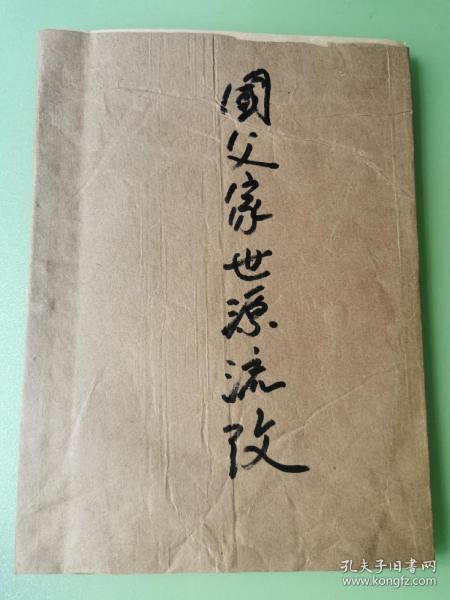 國父家世源流攷
孔夫子旧书网
www.kongfz.com